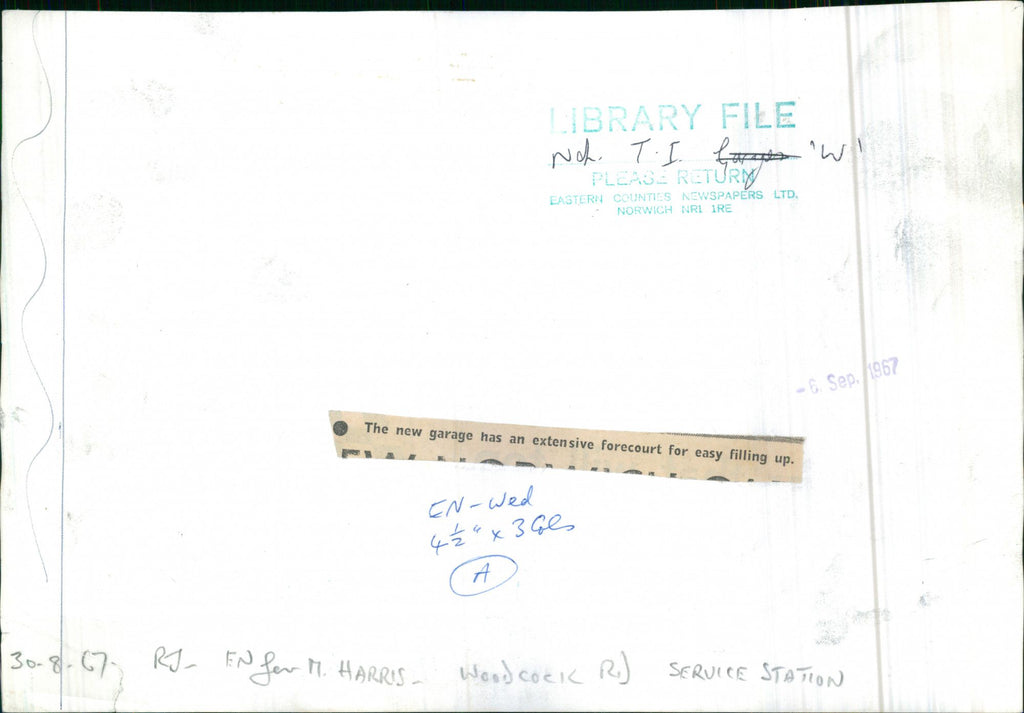 LIBRARY FILE
Nch. T.I. Garages 'W'
PLEASE RETURN
EASTERN COUNTIES NEWSPAPERS LTD.
NORWICH NR1 1RE
- 6. Sep. 1967
● The new garage has an extensive forecourt for easy filling up.
EN - Wed
4 1/2" x 3 Cols
A
30-8-67- RJ- EN for M. HARRIS- WOODCOCK Rd SERVICE STATION